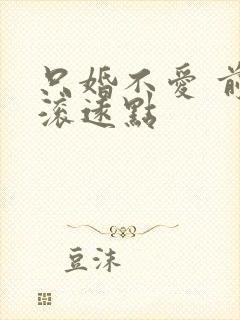 只婚不愛 前
滾遠點
豆沫